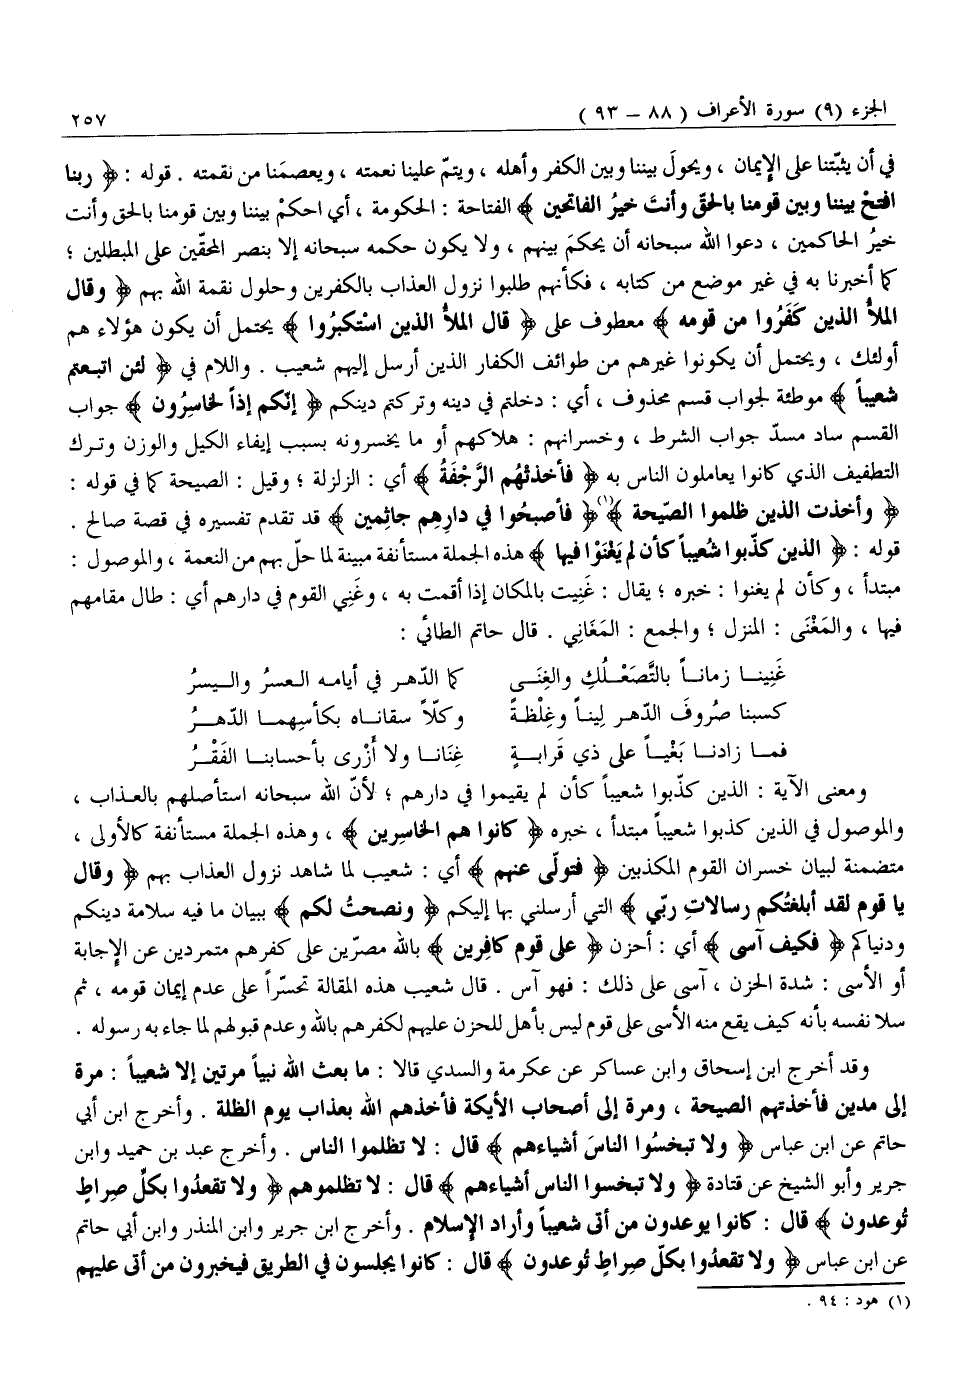 الجزء (٩) سورة الأعراف ( ٨٨ – ٩٣ ) ٢٥٧
في أن يثبّتنا على الإيمان ، ويحولَ بيننا وبين الكفر وأهله ، ويتمّ علينا نعمته ، ويعصمَنا من نقمته . قوله : ﴿ ربنا
افتحْ بيننا وبين قومنا بالحقّ وأنتَ خيرُ الفاتحين ﴾ الفتاحة : الحكومة ، أي احكمْ بيننا وبين قومنا بالحق وأنت
خيرُ الحاكمين ، دعوا الله سبحانه أن يحكمَ بينهم ، ولا يكون حكمه سبحانه إلا بنصر المحقّين على المبطلين ؛
كما أخبرنا به في غير موضع من كتابه ، فكأنهم طلبوا نزول العذاب بالكفرين وحلول نقمة الله بهم ﴿ وقال
الملأُ الذين كَفَرُوا من قومه ﴾ معطوف على ﴿ قال الملأُ الذين اسْتكبرُوا ﴾ يحتمل أن يكون هؤلاء هم
أولئك ، ويحتمل أن يكونوا غيرهم من طوائف الكفار الذين أرسل إليهم شعيب . واللام في ﴿ لئن اتبعتم
شعيباً ﴾ موطئة لجواب قسم محذوف ، أي : دخلتم في دينه وتركتم دينكم ﴿ إنّكم إذاً لخاسِرُون ﴾ جواب
القسم ساد مسدّ جواب الشرط ، وخسرانهم : هلاكهم أو ما يخسرونه بسبب إيفاء الكيل والوزن وترك
التطفيف الذي كانوا يعاملون الناس به ﴿ فأخذتْهُم الرَّجْفَةُ ﴾ أي : الزلزلة ؛ وقيل : الصيحة كما في قوله :
﴿ وأخذت الذين ظلموا الصّيحة ﴾(١) ﴿ فأصبحُوا في دارِهِم جاثِمين ﴾ قد تقدم تفسيره في قصة صالح .
قوله : ﴿ الذين كذّبوا شُعيباً كأن لم يَغْنَوْا فيها ﴾ هذه الجملة مستأنفة مبينة لما حلّ بهم من النعمة ، والموصول :
مبتدأ ، وكأن لم يغنوا : خبره ؛ يقال : غَنِيت بالمكان إذا أقمت به ، وغَنِي القوم في دارهم أي : طال مقامهم
فيها ، والمَغْنَى : المنزل ؛ والجمع : المَغَانِي . قال حاتم الطائي :
غَنِينـا زمانـاً بالتَّصَعْـلُكِ والغِنَـى كما الدّهـر في أيامـه العسرُ واليـسرُ
كسبنا صُروفَ الدّهـر لِيناً وغِلْظـةً وكلّاً سقانـاه بكأسِهمـا الدّهـرُ
فمـا زادنـا بَغْيـاً على ذي قَرابـةٍ غِنَانـا ولا أَزْرى بأحسابنـا الفَقْـرُ
ومعنى الآية : الذين كذّبوا شعيباً كأن لم يقيموا في دارهم ؛ لأنّ الله سبحانه استأصلهم بالعـذاب ،
والموصول في الذين كذبوا شعيباً مبتدأ ، خبره ﴿ كانوا هم الخاسِرين ﴾ ، وهذه الجملة مستأنفة كالأولى ،
متضمنة لبيان خسران القوم المكذبين ﴿ فتولّى عنهم ﴾ أي : شعيب لما شاهد نزول العذاب بهم ﴿ وقال
يا قوم لقد أبلغتُكم رسالاتِ ربّي ﴾ التي أرسلني بها إليكم ﴿ ونصحتُ لكم ﴾ ببيان ما فيه سلامة دينكم
ودنياكم ﴿ فكيف آسى ﴾ أي : أحزن ﴿ على قوم كافِرين ﴾ بالله مصرّين على كفرهم متمردين عن الإجابة
أو الأسى : شدة الحزن ، آسى على ذلك : فهو آس . قال شعيب هذه المقالة تحسّراً على عدم إيمان قومه ، ثم
سلا نفسه بأنه كيف يقع منه الأسى على قوم ليس بأهل للحزن عليهم لكفرهم بالله وعدم قبولهم لما جاء به رسوله .
وقد أخرج ابن إسحاق وابن عساكر عن عكرمة والسدي قالا : ما بعث الله نبياً مرتين إلا شعيباً : مرة
إلى مدين فأخذتهم الصيحة ، ومرة إلى أصحاب الأيكة فأخذهم الله بعذاب يوم الظلة . وأخرج ابن أبي
حاتم عن ابن عباس ﴿ ولا تبخسُوا الناسَ أشياءهم ﴾ قال : لا تظلموا الناس . وأخرج عبد بن حميد وابن
جرير وأبو الشيخ عن قتادة ﴿ ولا تبخسوا الناس أشياءهم ﴾ قال : لا تظلموهم ﴿ ولا تقعدُوا بكلِّ صِراطٍ
تُوعدون ﴾ قال : كانوا يوعدون من أتى شعيباً وأراد الإسلام . وأخرج ابن جرير وابن المنذر وابن أبي حاتم
عن ابن عباس ﴿ ولا تقعدُوا بكلّ صِراطٍ تُوعدون ﴾ قال : كانوا يجلسون في الطريق فيخبرون من أتى عليهم
(١) هود : ٩٤ .